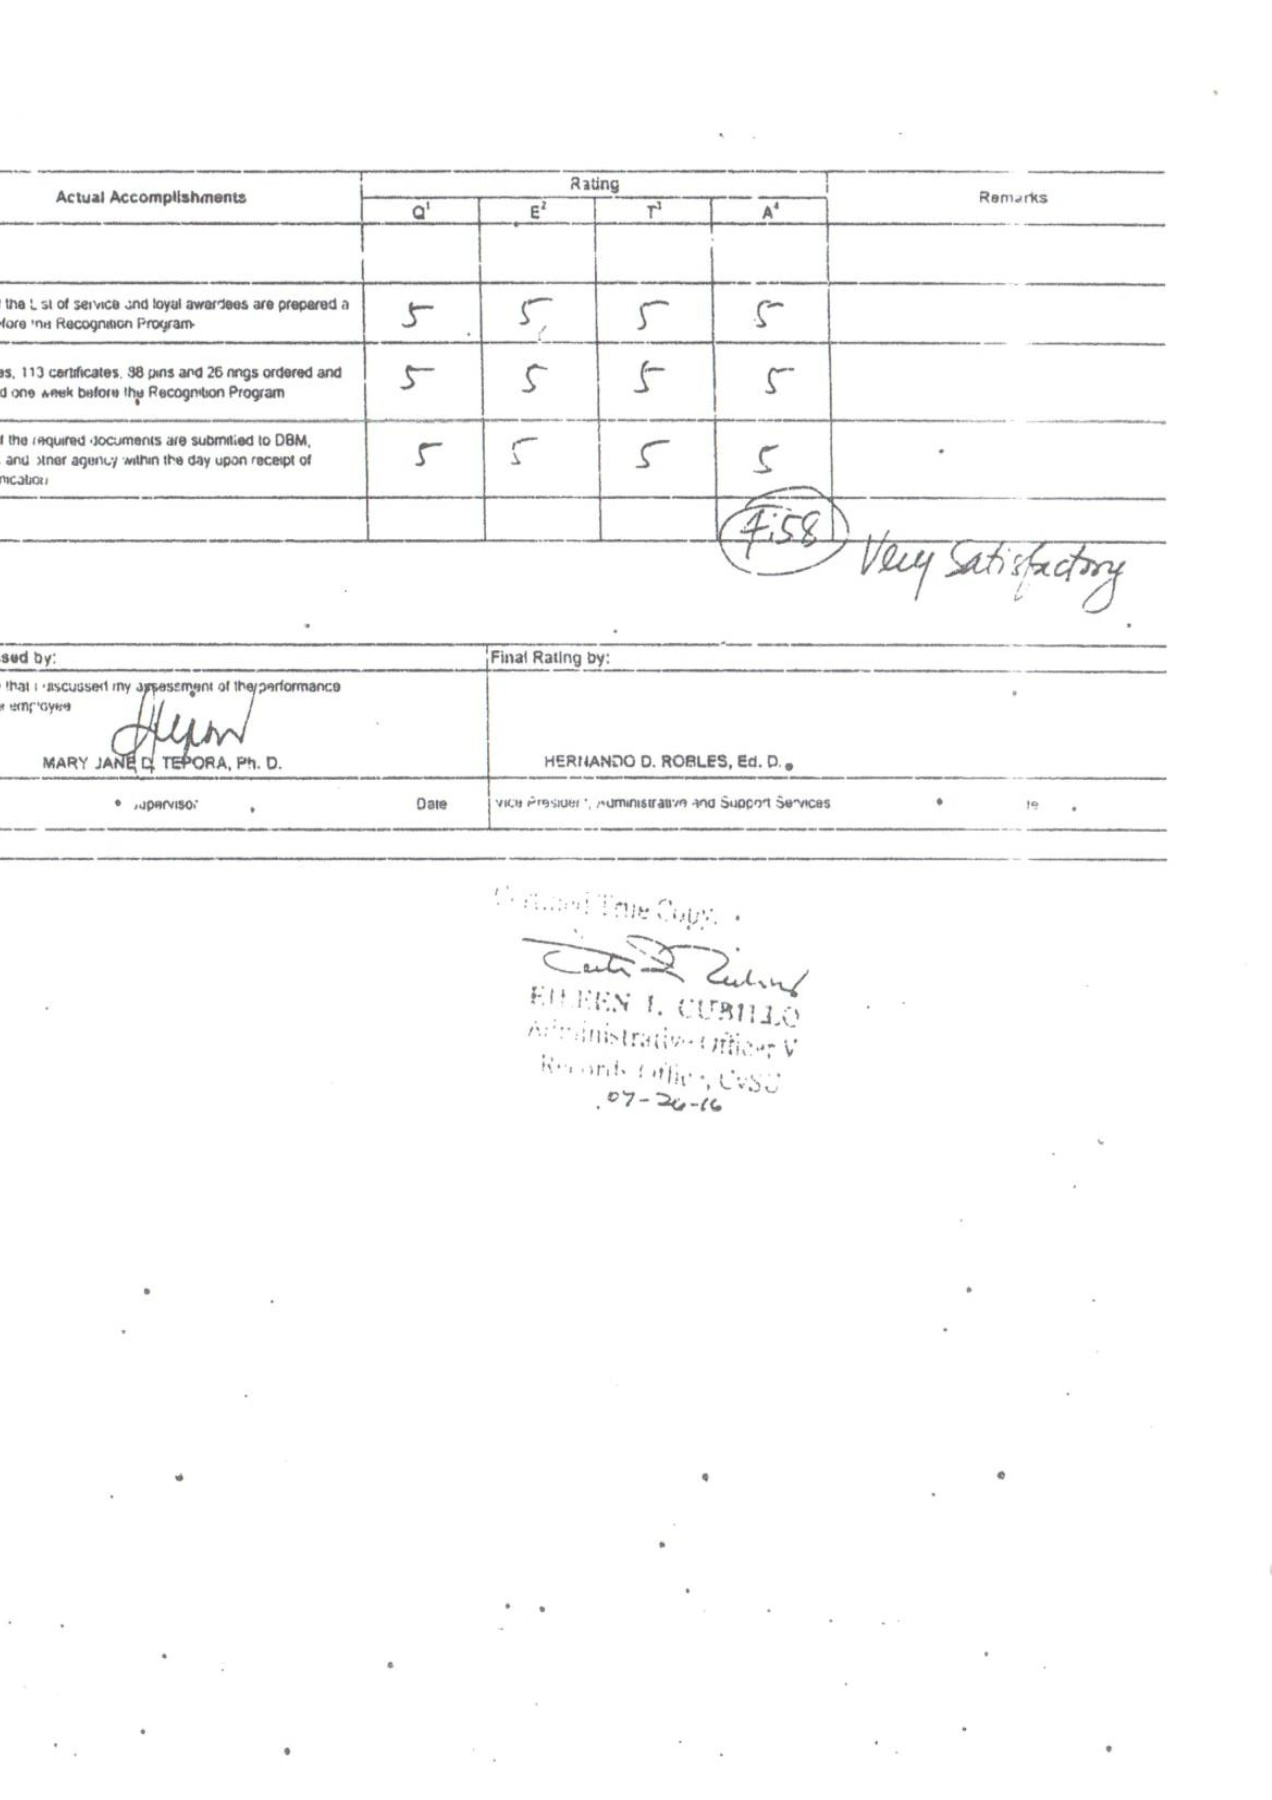 Actual Accomplishments Rating Remarks
Q¹ E² T³ A⁴
the List of service and loyal awardees are prepared a
fore the Recognition Program
5 5 5 5
es, 113 certificates, 38 pins and 26 rings ordered and
d one week before the Recognition Program
5 5 5 5
f the required documents are submitted to DBM,
and other agency within the day upon receipt of
nication
5 5 5 5
4.58 Very Satisfactory
sed by: Final Rating by:
that I discussed my assessment of the performance
e employee
MARY JANE D. TEPORA, Ph. D. HERNANDO D. ROBLES, Ed. D.
Supervisor Date Vice President, Administrative and Support Services te
Certified True Copy:
EILEEN L. CUBILLO
Administrative Officer V
Records Office, CvSU
07-26-16